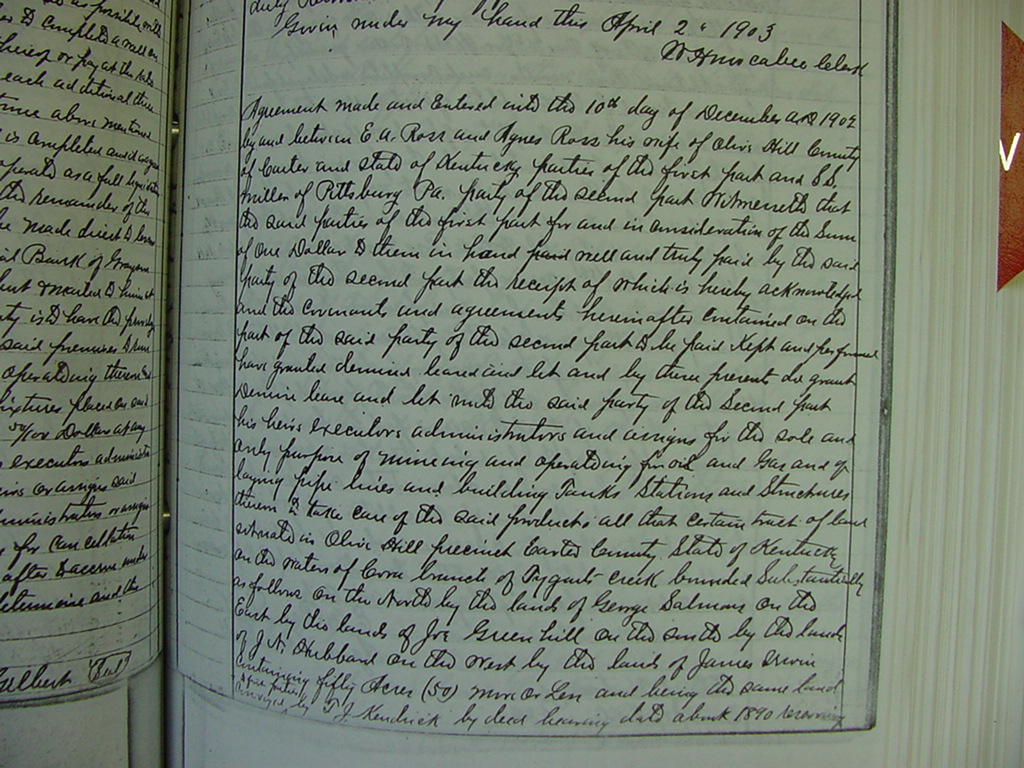 so as possible with
to completed a well on
thereof or pay at the rate
each additional three
time above mentioned
is completed and
operate as a full
the remainder of the
be made direct to
Bank of Grayson
ent & mailed to him at
ty is to have the privilege
said premises to run
operating thereon
fixtures placed on said
50/100 Dollars at any
executors administra
eirs or assigns said
ministrators or assigns
for cancellation
after to accrue under
determine and the
Gilbert Seal
duty Recorded
Given under my hand this April 2" 1903
Clerk
Agreement made and Entered into the 10th day of December A.D 1902
by and between E A. Ross and Agnes Ross his wife of Olive Hill County
of Carter and State of Kentucky parties of the first part and S S.
Miller of Pittsburg Pa. party of the second part Witnesseth that
the said parties of the first part for and in consideration of the Sum
of One Dollar to them in hand paid well and truly paid by the said
party of the second part the receipt of which is hereby acknowledged
and the covenants and agreements hereinafter contained on the
part of the said party of the second part to be paid Kept and performed
have granted demised leased and let and by these presents do grant
Demise lease and let unto the said party of the Second part
his heirs executors administrators and assigns for the sole and
only purpose of mineing and operatding for oil and Gas and of
laying pipe lines and building Tanks Stations and Structures
thereon to take care of the said products all that certain tract of land
situate in Olive Hill precinct Carter County State of Kentucky
on the waters of branch of Tygarts creek bounded Substantially
as follows on the North by the lands of George Salmons on the
East by the lands of Joe Greenhill on the south by the lands
of J. N. Hubbard on the West by the lands of James Irvin
containing fifty Acres (50) more or Less and being the same land
conveyed by T J. Kendrick by deed bearing date about 1890 reserving